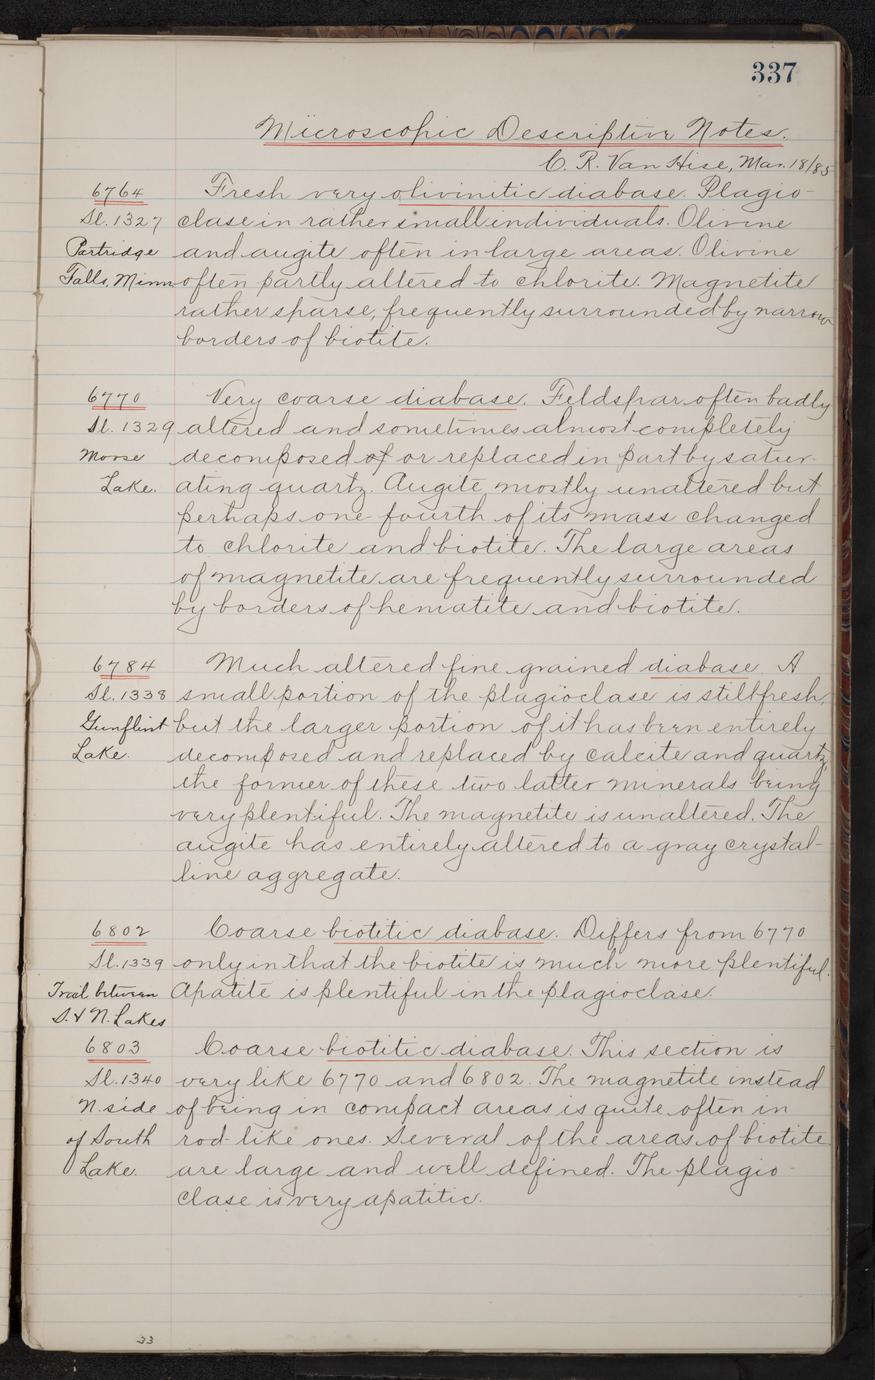 337
Microscopic Descriptive Notes.
C. R. Van Hise, Mar. 18/85
6764 Fresh very olivinitic diabase. Plagio-
Sl. 1327 clase in rather small individuals. Olivine
Partridge and augite often in large areas. Olivine
Falls, Minn often partly altered to chlorite. Magnetite
rather sparse, frequently surrounded by narrow
borders of biotite.
6770 Very coarse diabase. Feldspar often badly
Sl. 1329 altered and sometimes almost completely
Moose decomposed of or replaced in part by satur-
Lake. ating quartz. Augite mostly unaltered but
perhaps one-fourth of its mass changed
to chlorite and biotite. The large areas
of magnetite are frequently surrounded
by borders of hematite and biotite.
6784 Much altered fine grained diabase. A
Sl. 1338 small portion of the plagioclase is still fresh,
Gunflint but the larger portion of it has been entirely
Lake. decomposed and replaced by calcite and quartz,
the former of these two latter minerals being
very plentiful. The magnetite is unaltered. The
augite has entirely altered to a gray crystal-
line aggregate.
6802 Coarse biotitic diabase. Differs from 6770
Sl. 1339 only in that the biotite is much more plentiful.
Trail between Apatite is plentiful in the plagioclase.
S. & N. Lakes
6803 Coarse biotitic diabase. This section is
Sl. 1340 very like 6770 and 6802. The magnetite instead
N. side of being in compact areas is quite often in
of South rod-like ones. Several of the areas of biotite
Lake. are large and well defined. The plagio-
clase is very apatitic.
33